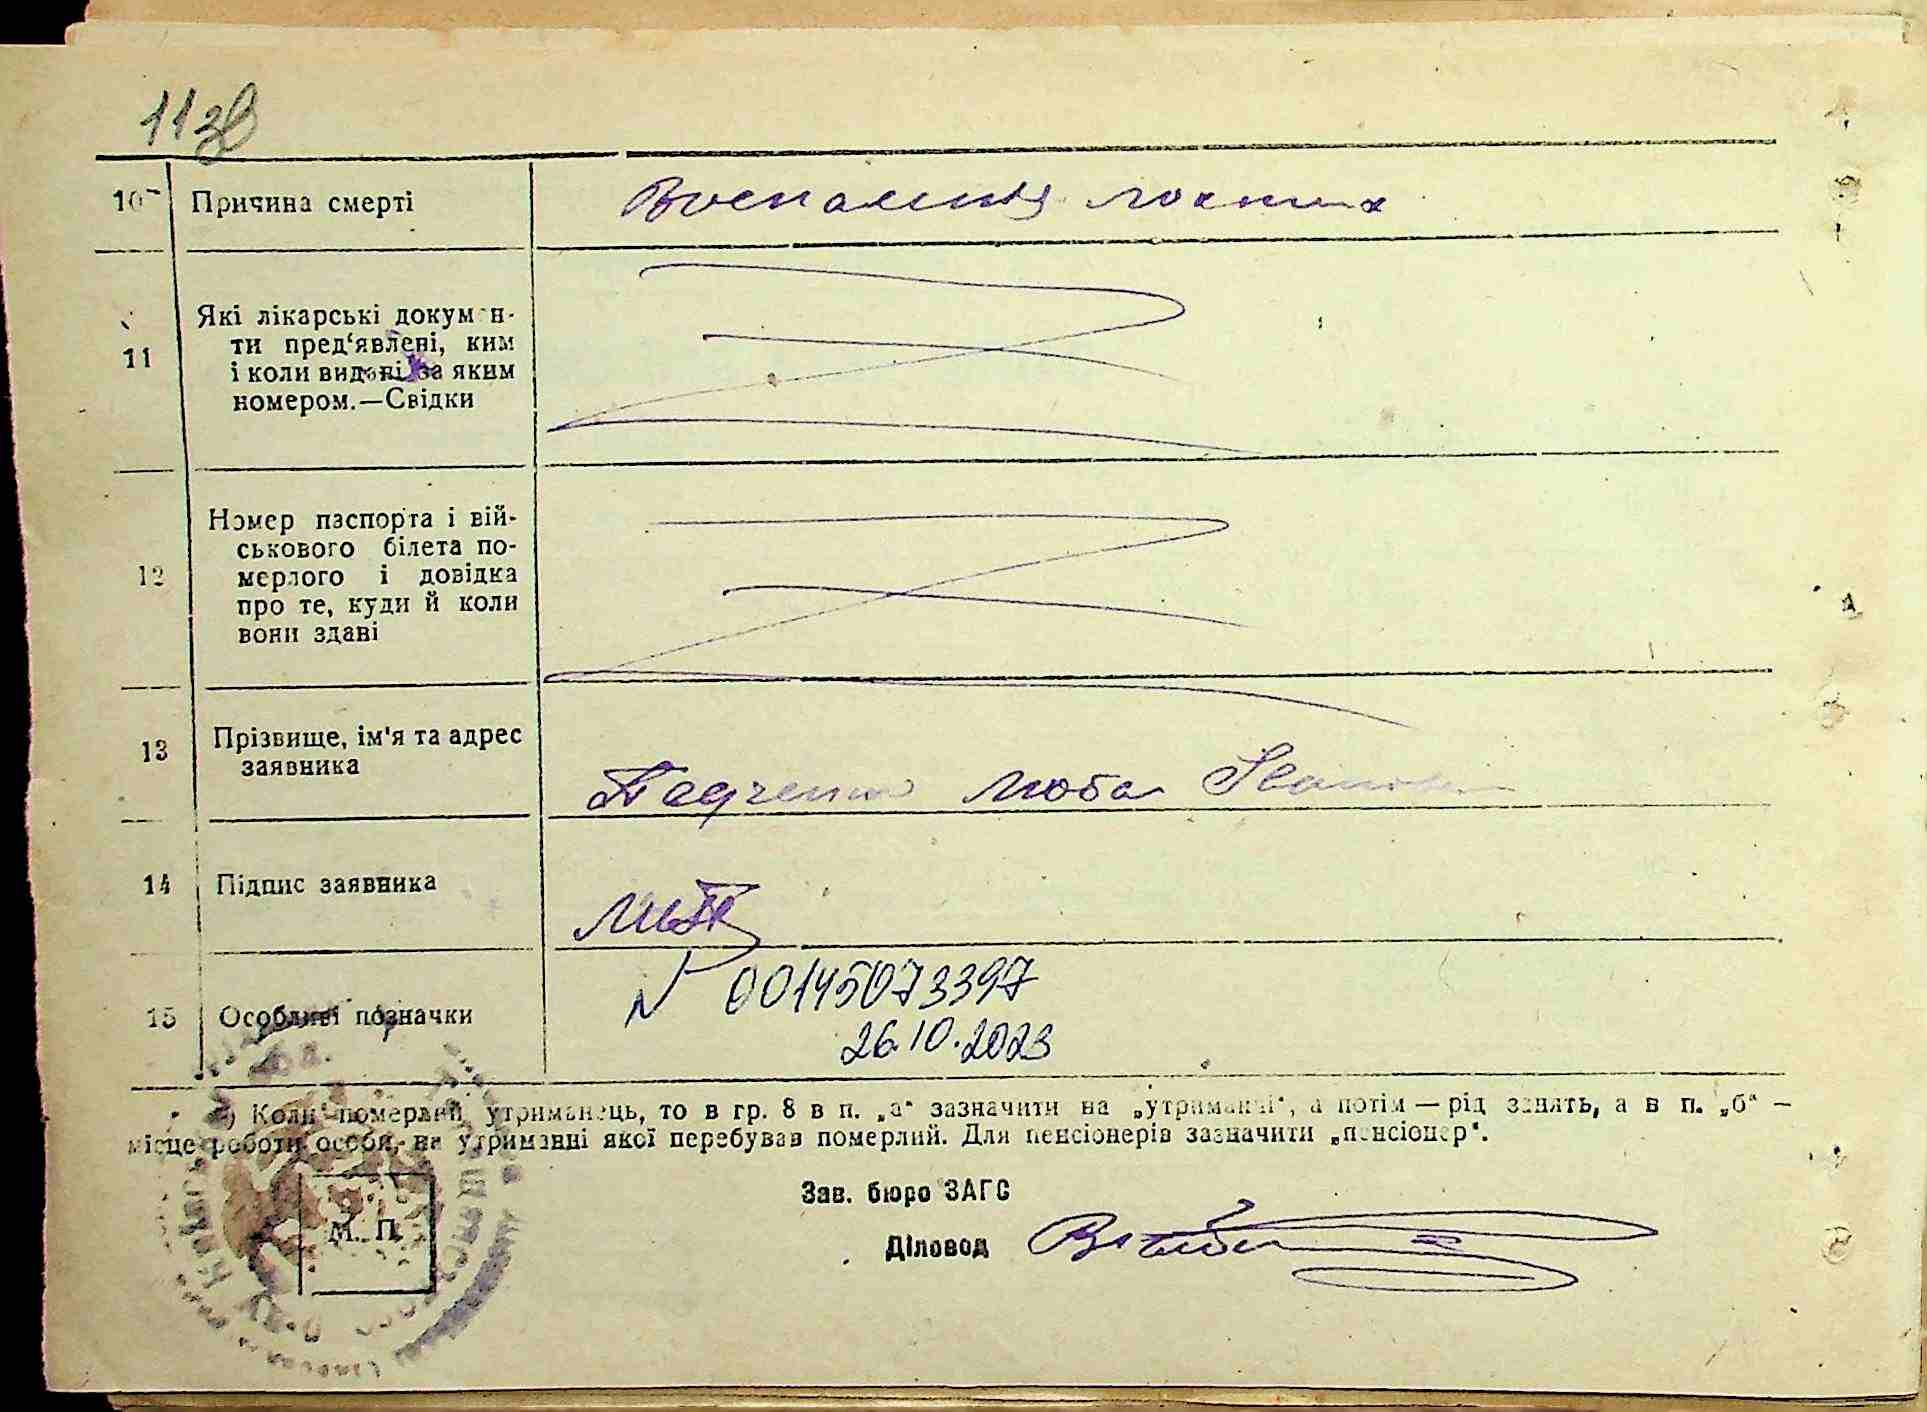 113
10 Причина смерті Воспаления
11 Які лікарські докумен-
ти пред'явлені, ким
і коли видані за яким
номером.—Свідки
12 Номер паспорта і вій-
ськового білета по-
мерлого і довідка
про те, куди й коли
вони здані
13 Прізвище, ім'я та адрес
заявника
Люба
14 Підпис заявника
№ 00145073397
15 Особливі позначки
26.10.2023
*) Коли померлий утриманець, то в гр. 8 в п. „а“ зазначити на „утриманні“, а потім — рід занять, а в п. „б“ —
місце роботи особи, на утриманні якої перебував померлий. Для пенсіонерів зазначити „пенсіонер“.
Зав. бюро ЗАГС
М. П.
Діловод